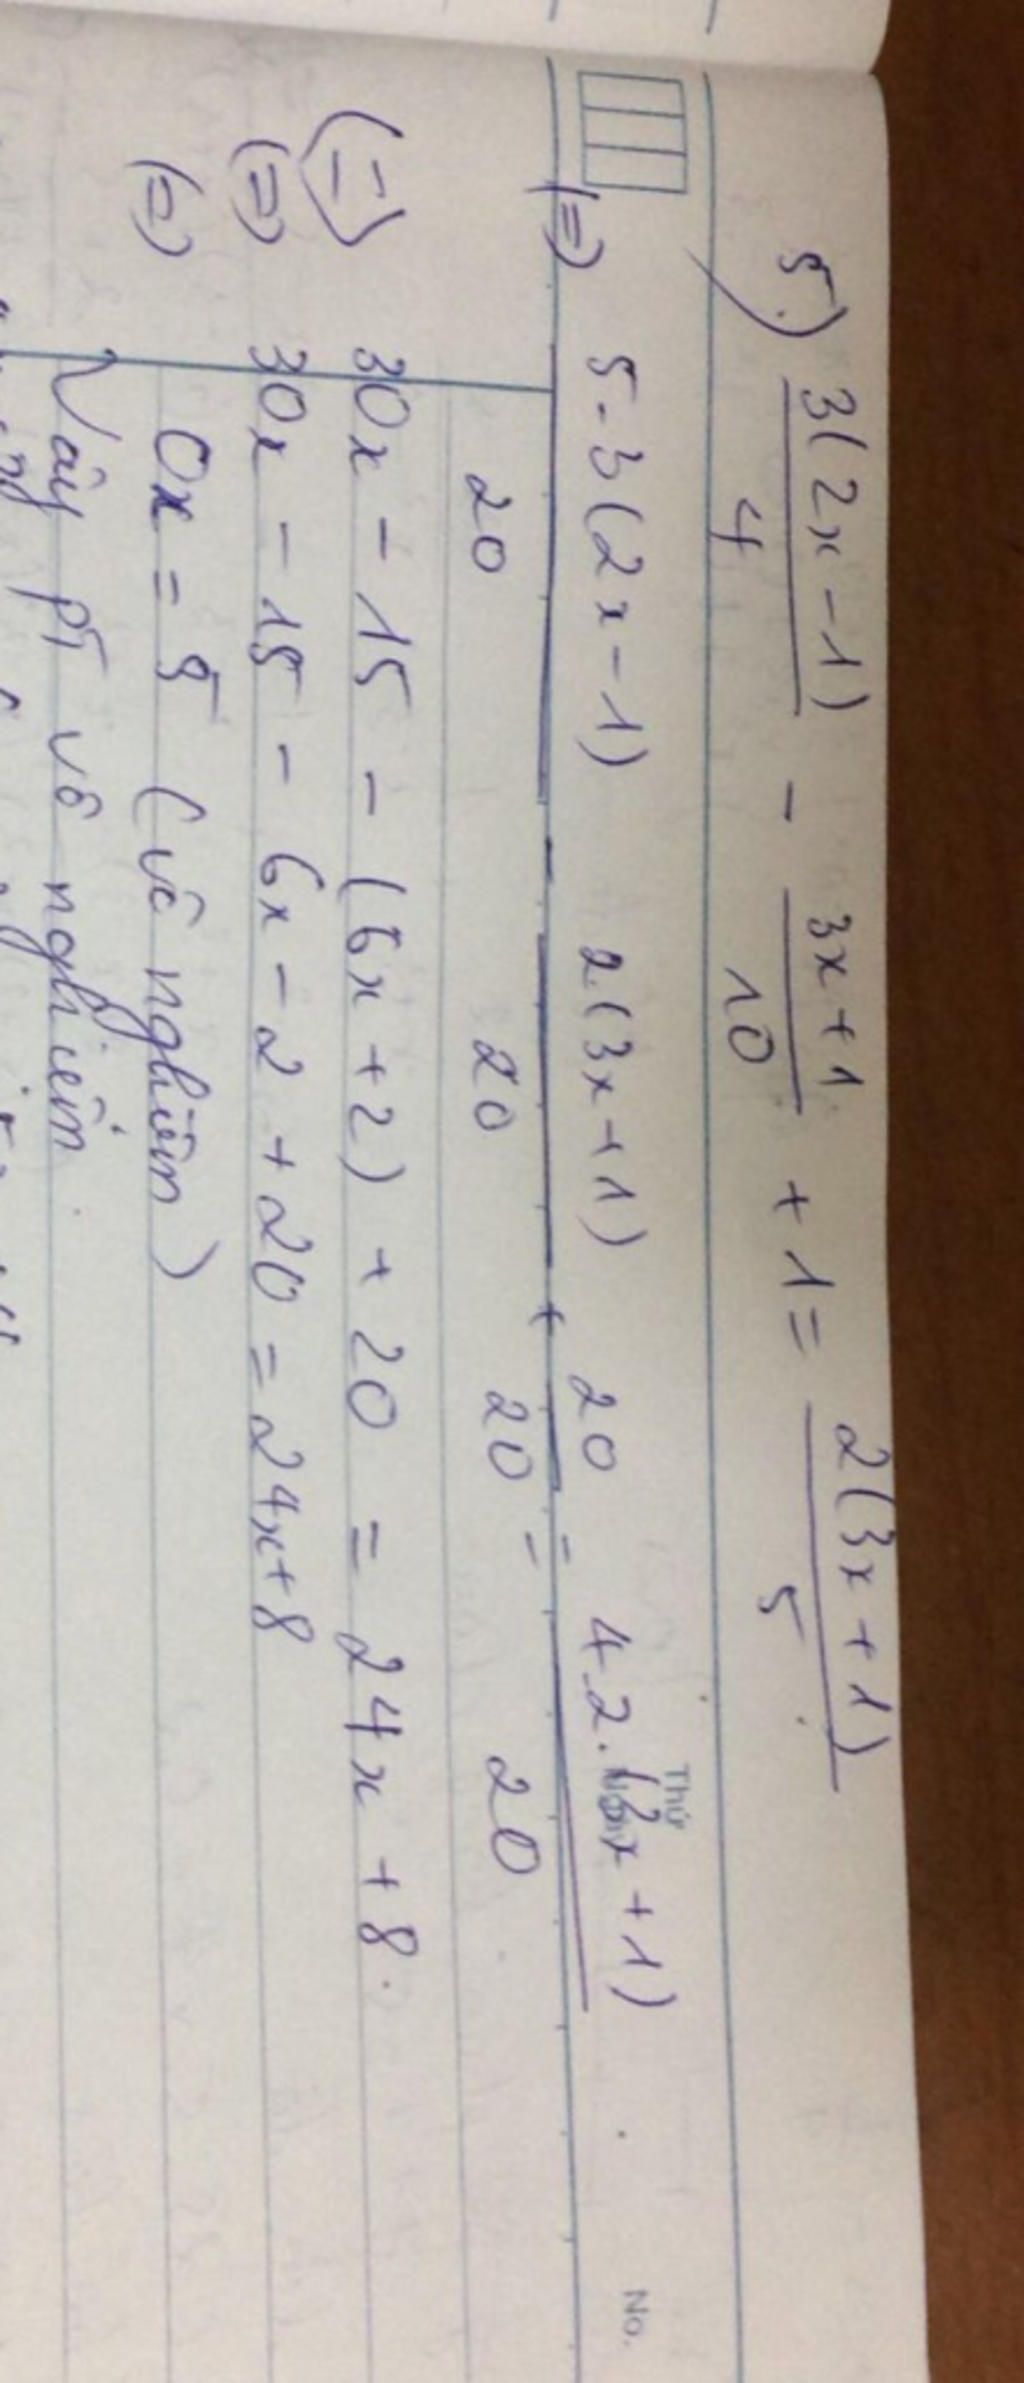 5) 3(2x-1)/4 - 3x+1/10 + 1 = 2(3x+1)/5
Thứ
No.
(=) 5.3(2x-1)/20 - 2(3x+1)/20 + 20/20 = 4.2.(3x+1)/20
(=) 30x - 15 - (6x+2) + 20 = 24x + 8.
(=) 30x - 15 - 6x - 2 + 20 = 24x + 8
(=) 0x = 5 (vô nghiệm)
Vậy pt vô nghiệm.